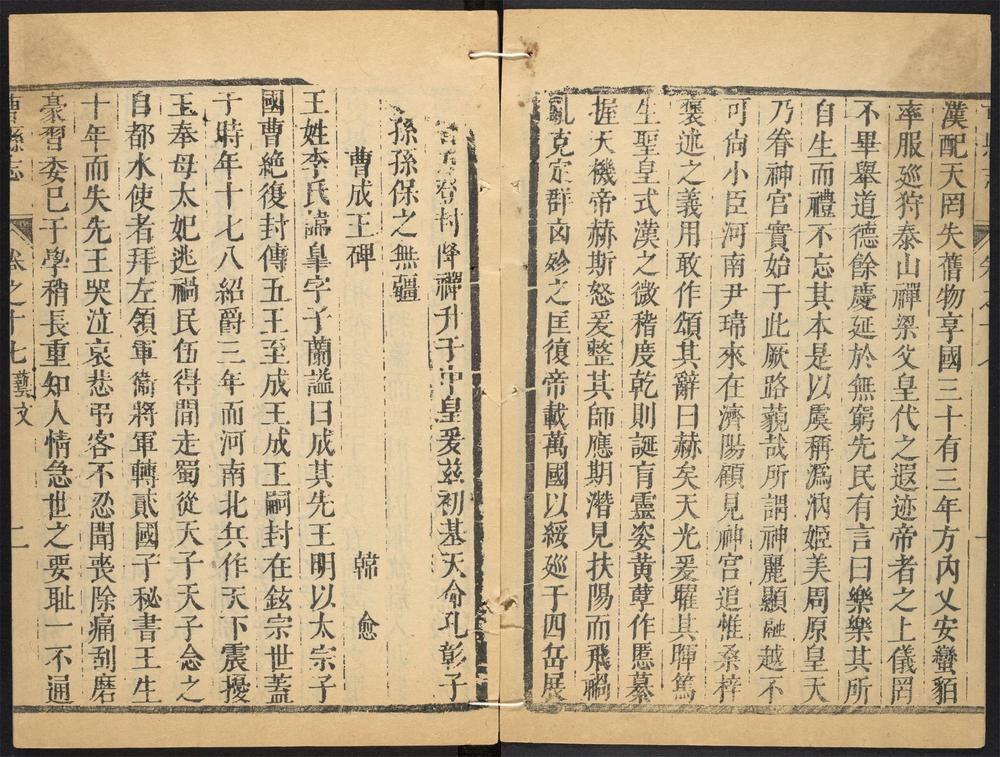 漢配天罔失舊物享國三十有三年方內乂安蠻貊
率服廵狩泰山禪梁父皇代之遐迹帝者之上儀罔
不畢舉道德餘慶延於無窮先民有言曰樂樂其所
自生而禮不忘其本是以虞稱溈汭姬美周原皇天
乃眷神宮實始于此厥路藐哉所謂神麗顯融越不
可尙小臣河南尹璓來在濟陽顧見神宮追惟桑梓
褒述之義用敢作頌其辭曰赫矣天光爰耀其暉篤
生聖皇式漢之微稽度乾則誕育靈姿黃孽作慝慕
握天機帝赫斯怒爰整其師應期潛見扶陽而飛禍
亂克定群凶殄之匡復帝載萬國以綏廵于四岳展
登封降禪升于中皇爰兹初基天命孔彰子
孫孫保之無疆
曹成王碑 韓愈
王姓李氏諱皐字子蘭謚曰成其先王明以太宗子
國曹絶復封傳五王至成王成王嗣封在鉉宗世蓋
于時年十七八紹爵三年而河南北兵作天下震擾
王奉母太妃逃禍民伍得間走蜀從天子天子念之
自都水使者拜左領軍衞將軍轉貳國子秘書王生
十年而失先王哭泣哀悲弔客不忍聞喪除痛刮磨
豪習委己于學稍長重知人情急世之要耻一不通
曹縣志 卷之十七 藝文 二